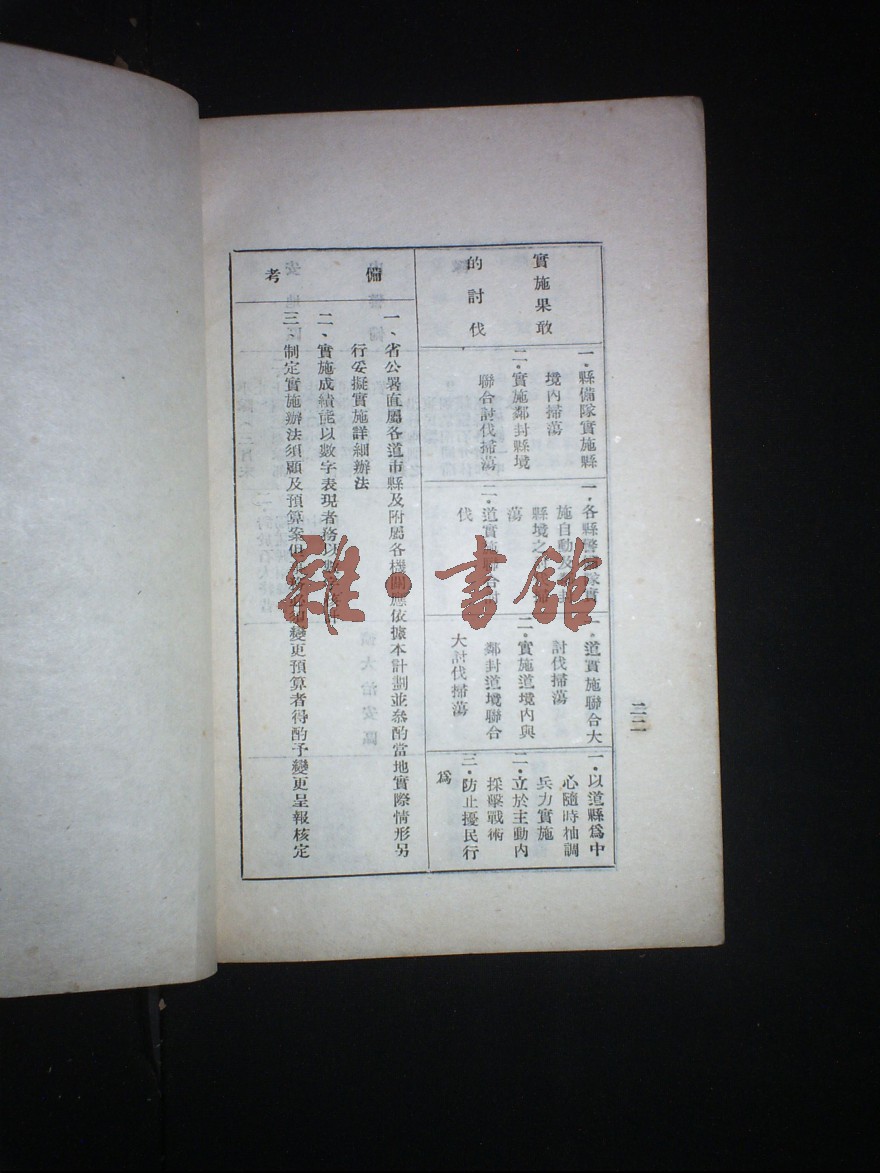 實施果敢
的討伐
一・縣備隊實施縣
境內掃蕩
二・實施鄰封縣境
聯合討伐掃蕩
一・各縣警備隊實
施自動及
縣境之
蕩
二・道實施聯合討
伐
一・道實施聯合大
討伐掃蕩
二・實施道境內與
鄰封道境聯合
大討伐掃蕩
一・以道縣爲中
心隨時柚調
兵力實施
二・立於主動內
採擊戰術
三・防止擾民行
爲
備考
一、省公署直屬各道市縣及附屬各機關應依據本計劃並參酌當地實際情形另
行妥擬實施詳細辦法
二、實施成績能以數字表現者務以數字
三、制定實施辦法須顧及預算案但 變更預算者得酌予變更呈報核定
二二
雜・書館